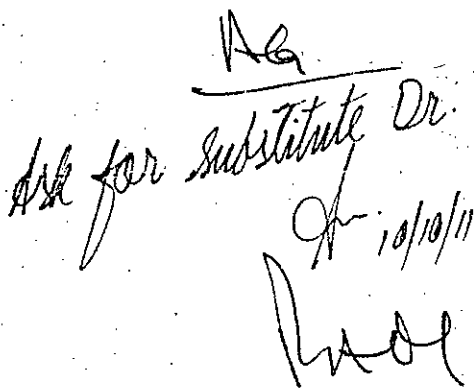 AG
Ask for substitute Dr.
10/10/11